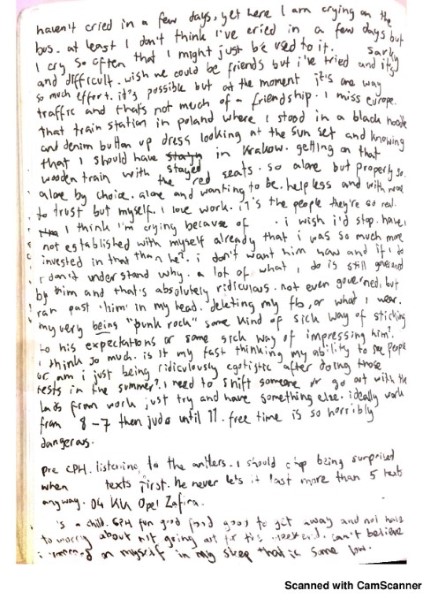 haven't cried in a few days, yet here I am crying on the
bus. at least I don't think I've cried in a few days but
I cry so often that I might just be used to it.
and difficult. wish we could be friends but i've tried and it's
so much effort. it's possible but at the moment it's one way
traffic and that's not much of a friendship. I miss europe.
that train station in poland where I stood in a black hoodie
and denim button up dress looking at the sun set and knowing
that I should have stayed in Krakow. getting on that
wooden train with the red seats. so alone but properly so.
alone by choice. alone and wanting to be. helpless and with
to trust but myself. I love work. it's the people they're so real.
I think I'm crying because of . i wish i'd stop. have i
not established with myself already that i was so much more
invested in that than he? i don't want him now and if i do
i don't understand why. a lot of what i do is still governed
by him and that's absolutely ridiculous. not even governed. but
ran past 'him' in my head. deleting my fb, or what I wear.
my very being "punk rock" some kind of sick way of sticking
to his expectations or some sick way of impressing him.
i think so much. is it my fast thinking my ability to see people
or am i just being ridiculously egotistic after doing those
tests in the summer? i need to shift someone or go out with the
lads from work just try and have something else. ideally work
from 8-7 then judo until 11. free time is so horribly
dangerous.
pre CPH. listening to the antlers. I should stop being surprised
when texts first. he never lets it last more than 5 texts
anyway. 04 KK Opel Zafira.
is a child. CPH fun good food good to get away and not have
to worry about not going out for the weekend. can't believe
i on myself in my sleep that is some
Scanned with CamScanner